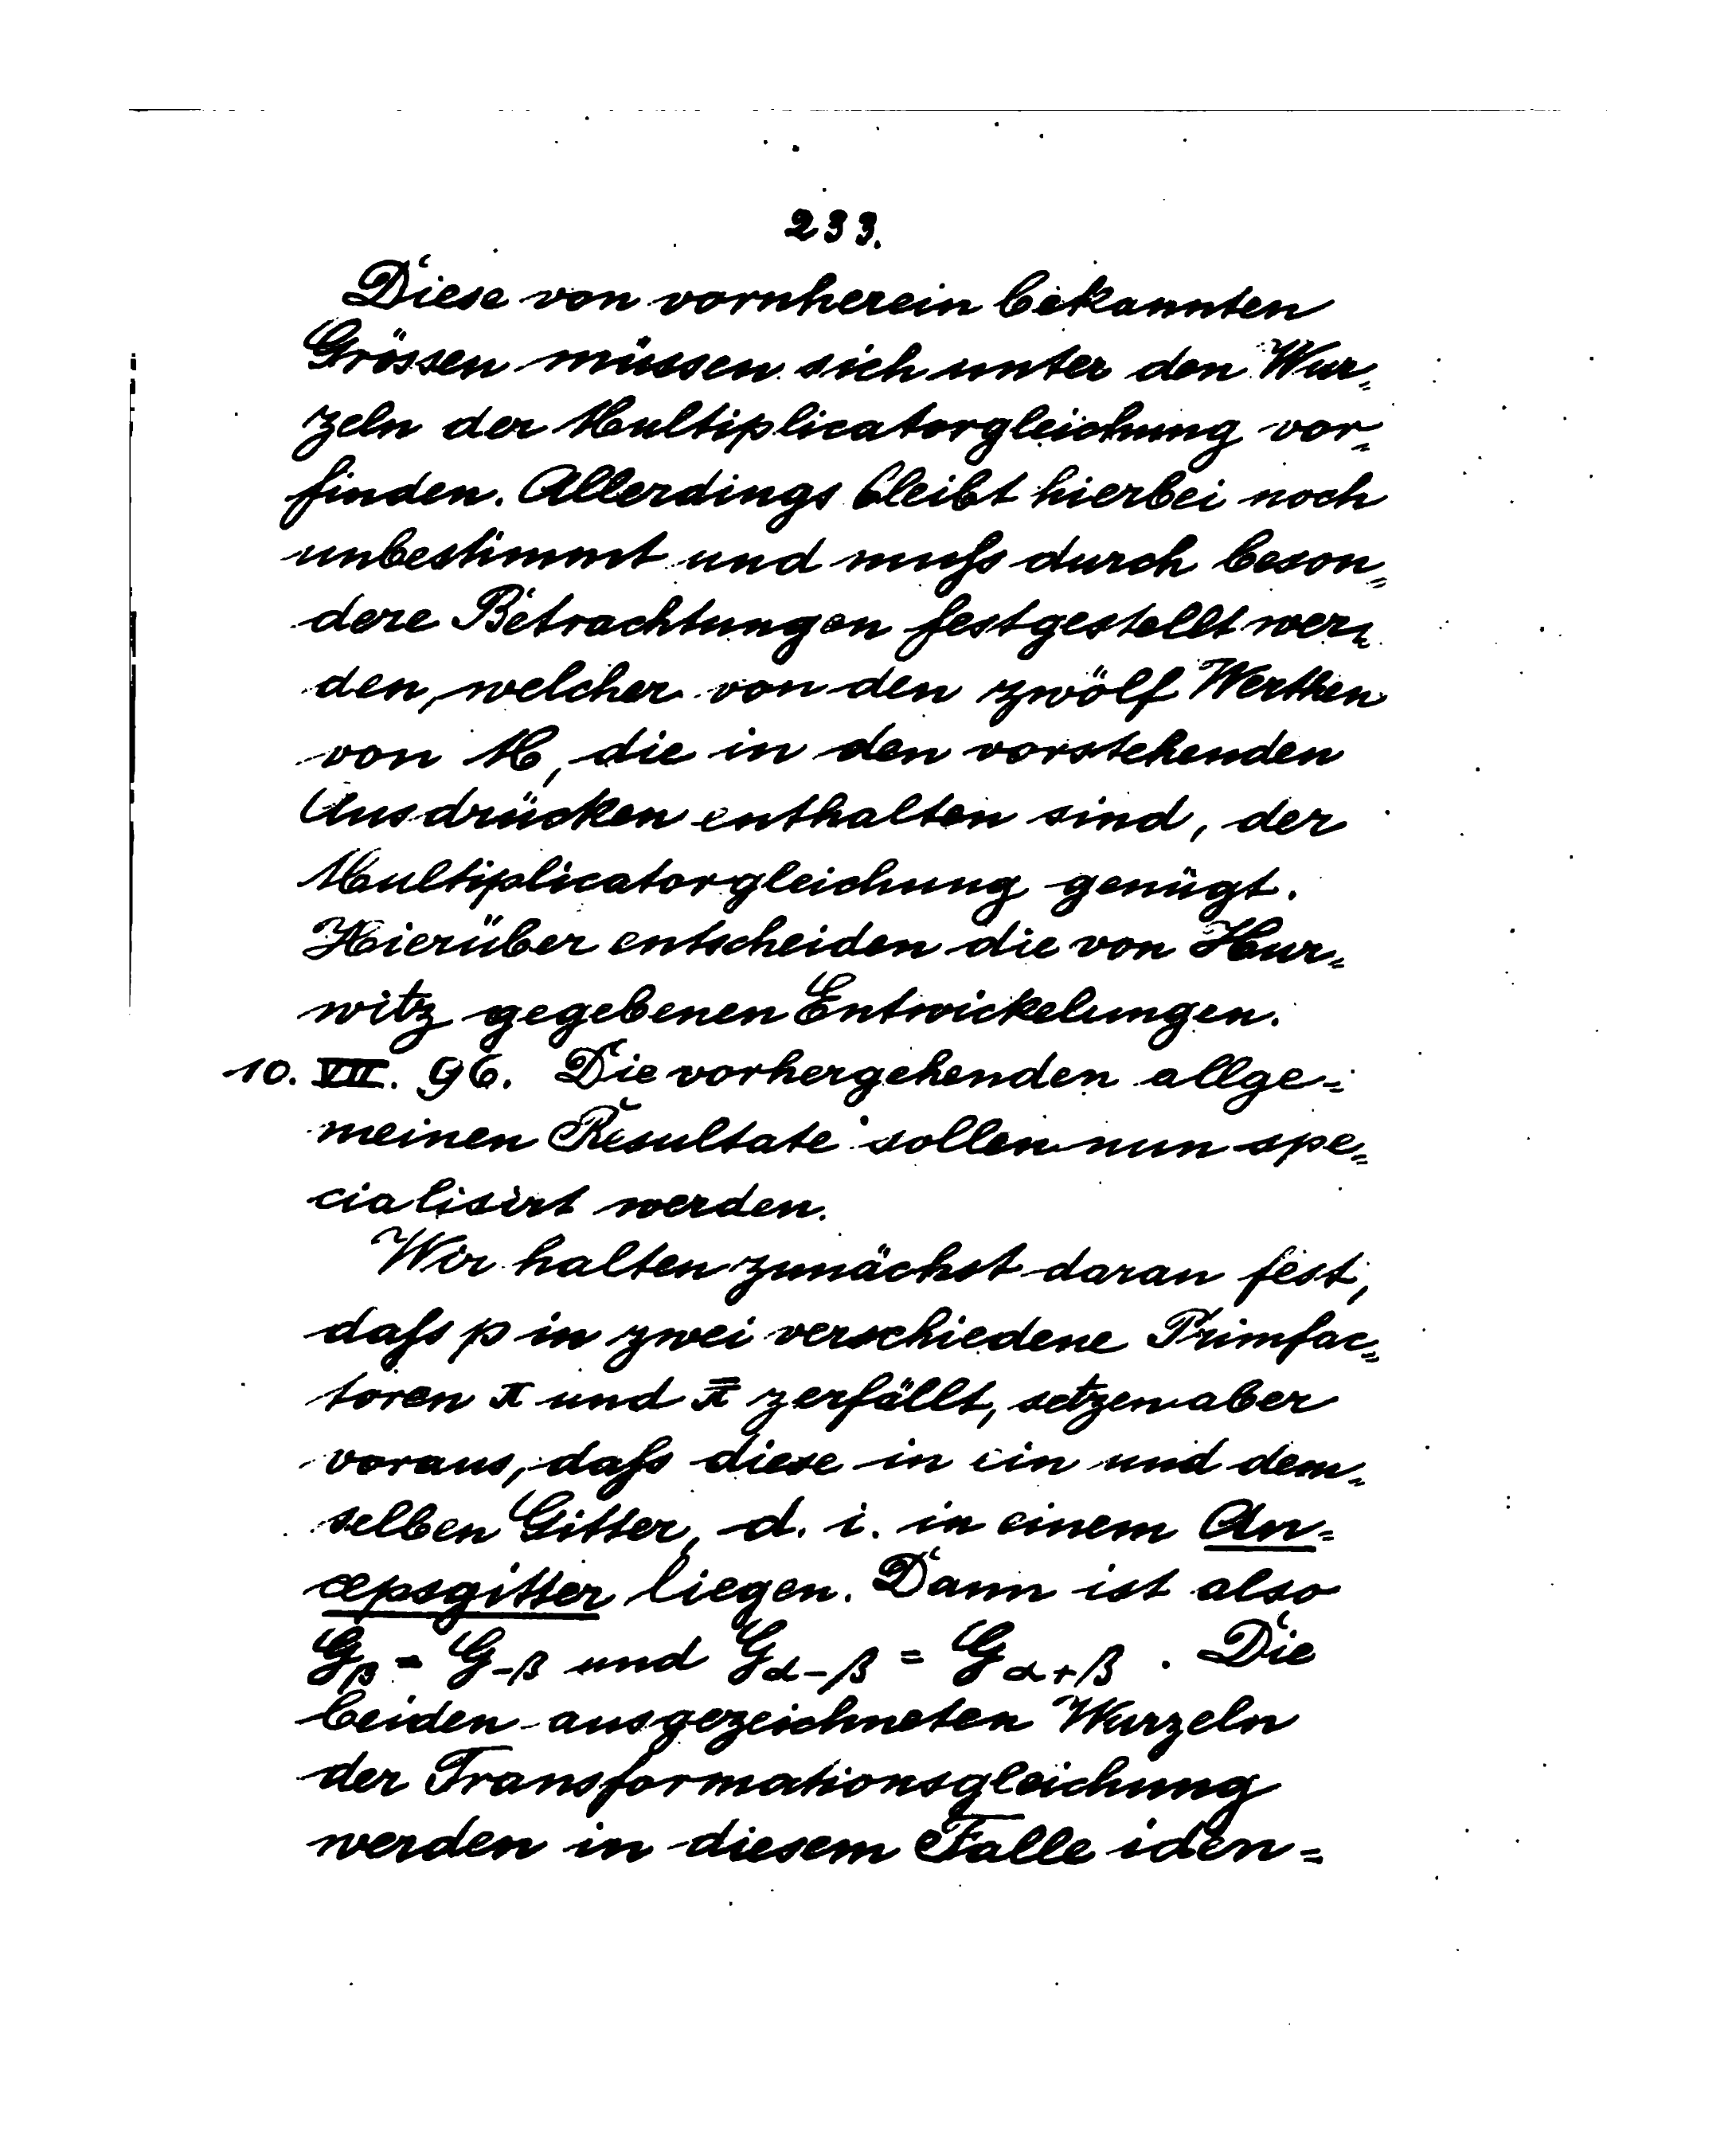 233.
Diese von vornherein bekannten
Grössen müssen sich unter den Wur=
zeln der Multiplicatorgleichung vor=
finden. Allerdings bleibt hierbei noch
unbestimmt und muſs durch beson=
dere Betrachtungen festgestellt wer=
den, welcher von den zwölf Werthen
von M, die in den vorstehenden
Ausdrücken enthalten sind, der
Multiplicatorgleichung genügt.
Hierüber entscheiden die von Hur=
witz gegebenen Entwickelungen.
10. VII. 96. Die vorhergehenden allge=
meinen Resultate sollen nun spe=
cialisirt werden.
Wir halten zunächst daran fest,
daſs p in zwei verschiedene Primfac=
toren π und π̅ zerfällt, setzen aber
voraus, daſs diese in ein und dem=
selben Gitter, d. i. in einem An=
cepsgitter liegen. Dann ist also
G_β = G_-β und G_α-β = G_α+β. Die
beiden ausgezeichneten Wurzeln
der Transformationsgleichung
werden in diesem Falle iden=